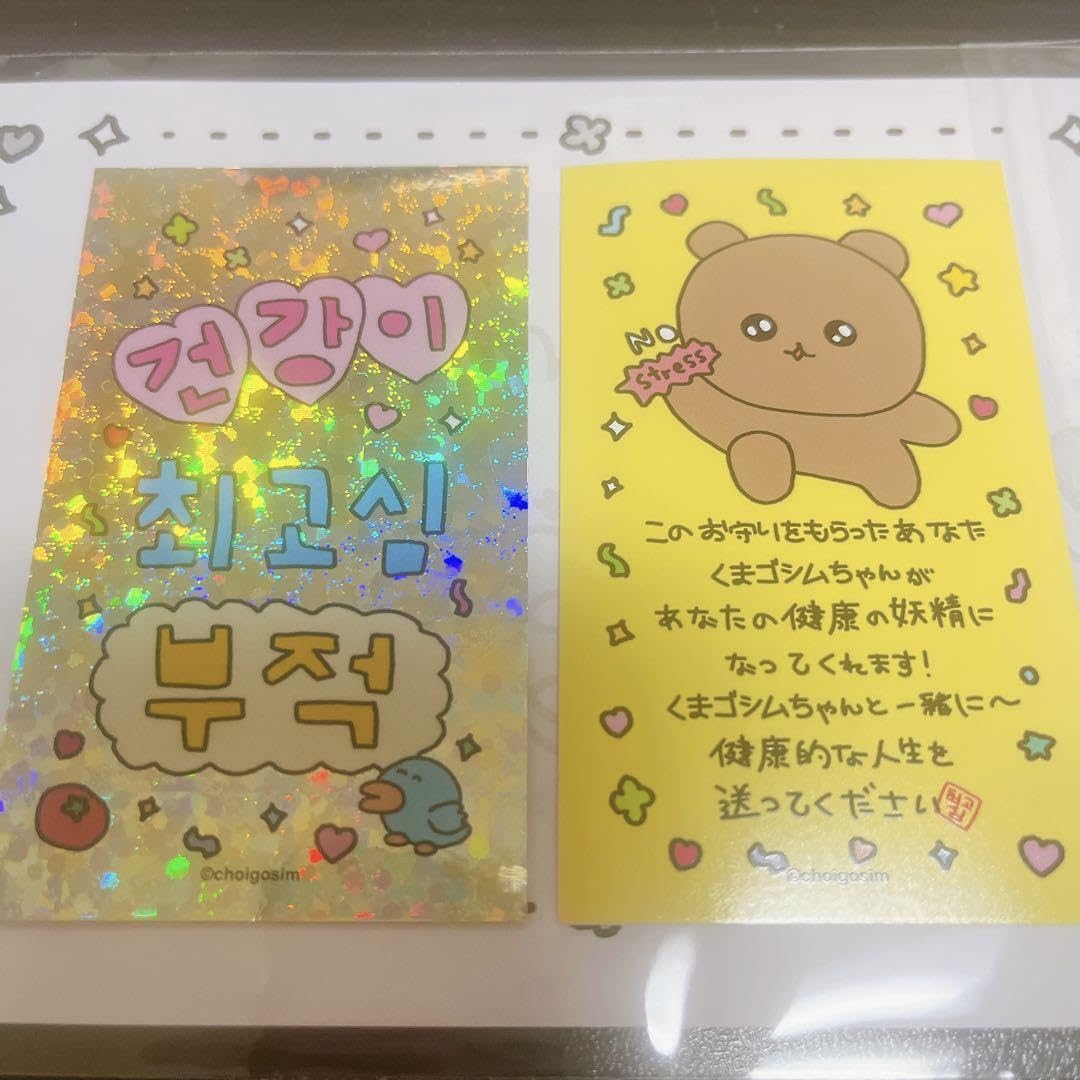 건강이
최고심
부적
©choigosim
NO
stress
このお守りをもらったあなた
くまゴシムちゃんが
あなたの健康の妖精に
なってくれます!
くまゴシムちゃんと一緒に〜
健康的な人生を
送ってください
최고심
©choigosim